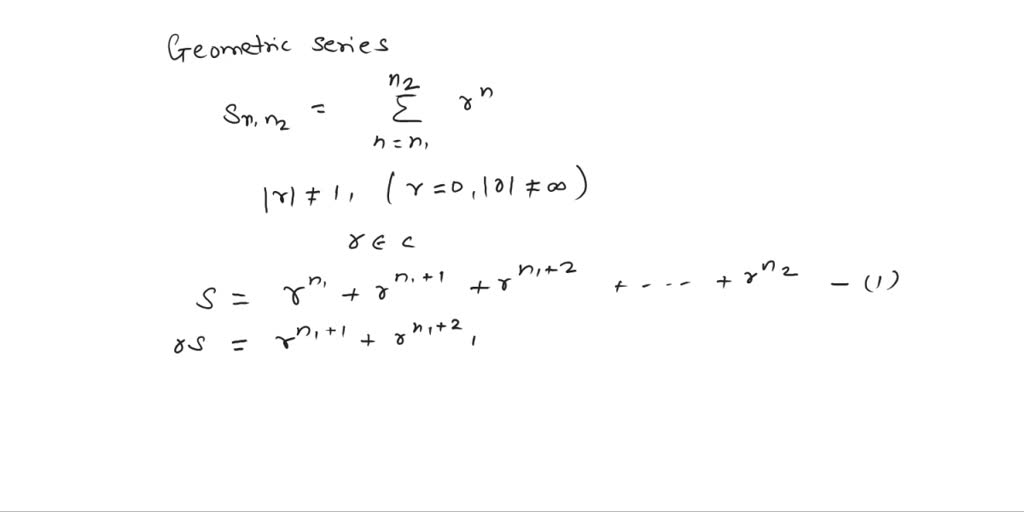 Geometric series
S_{n_1 n_2} = \sum_{n=n_1}^{n_2} r^n
|r| ≠ 1, (r = 0, |0| ≠ ∞)
r ∈ c
S = r^{n_1} + r^{n_1+1} + r^{n_1+2} + .... + r^{n_2} - (1)
rS = r^{n_1+1} + r^{n_1+2},